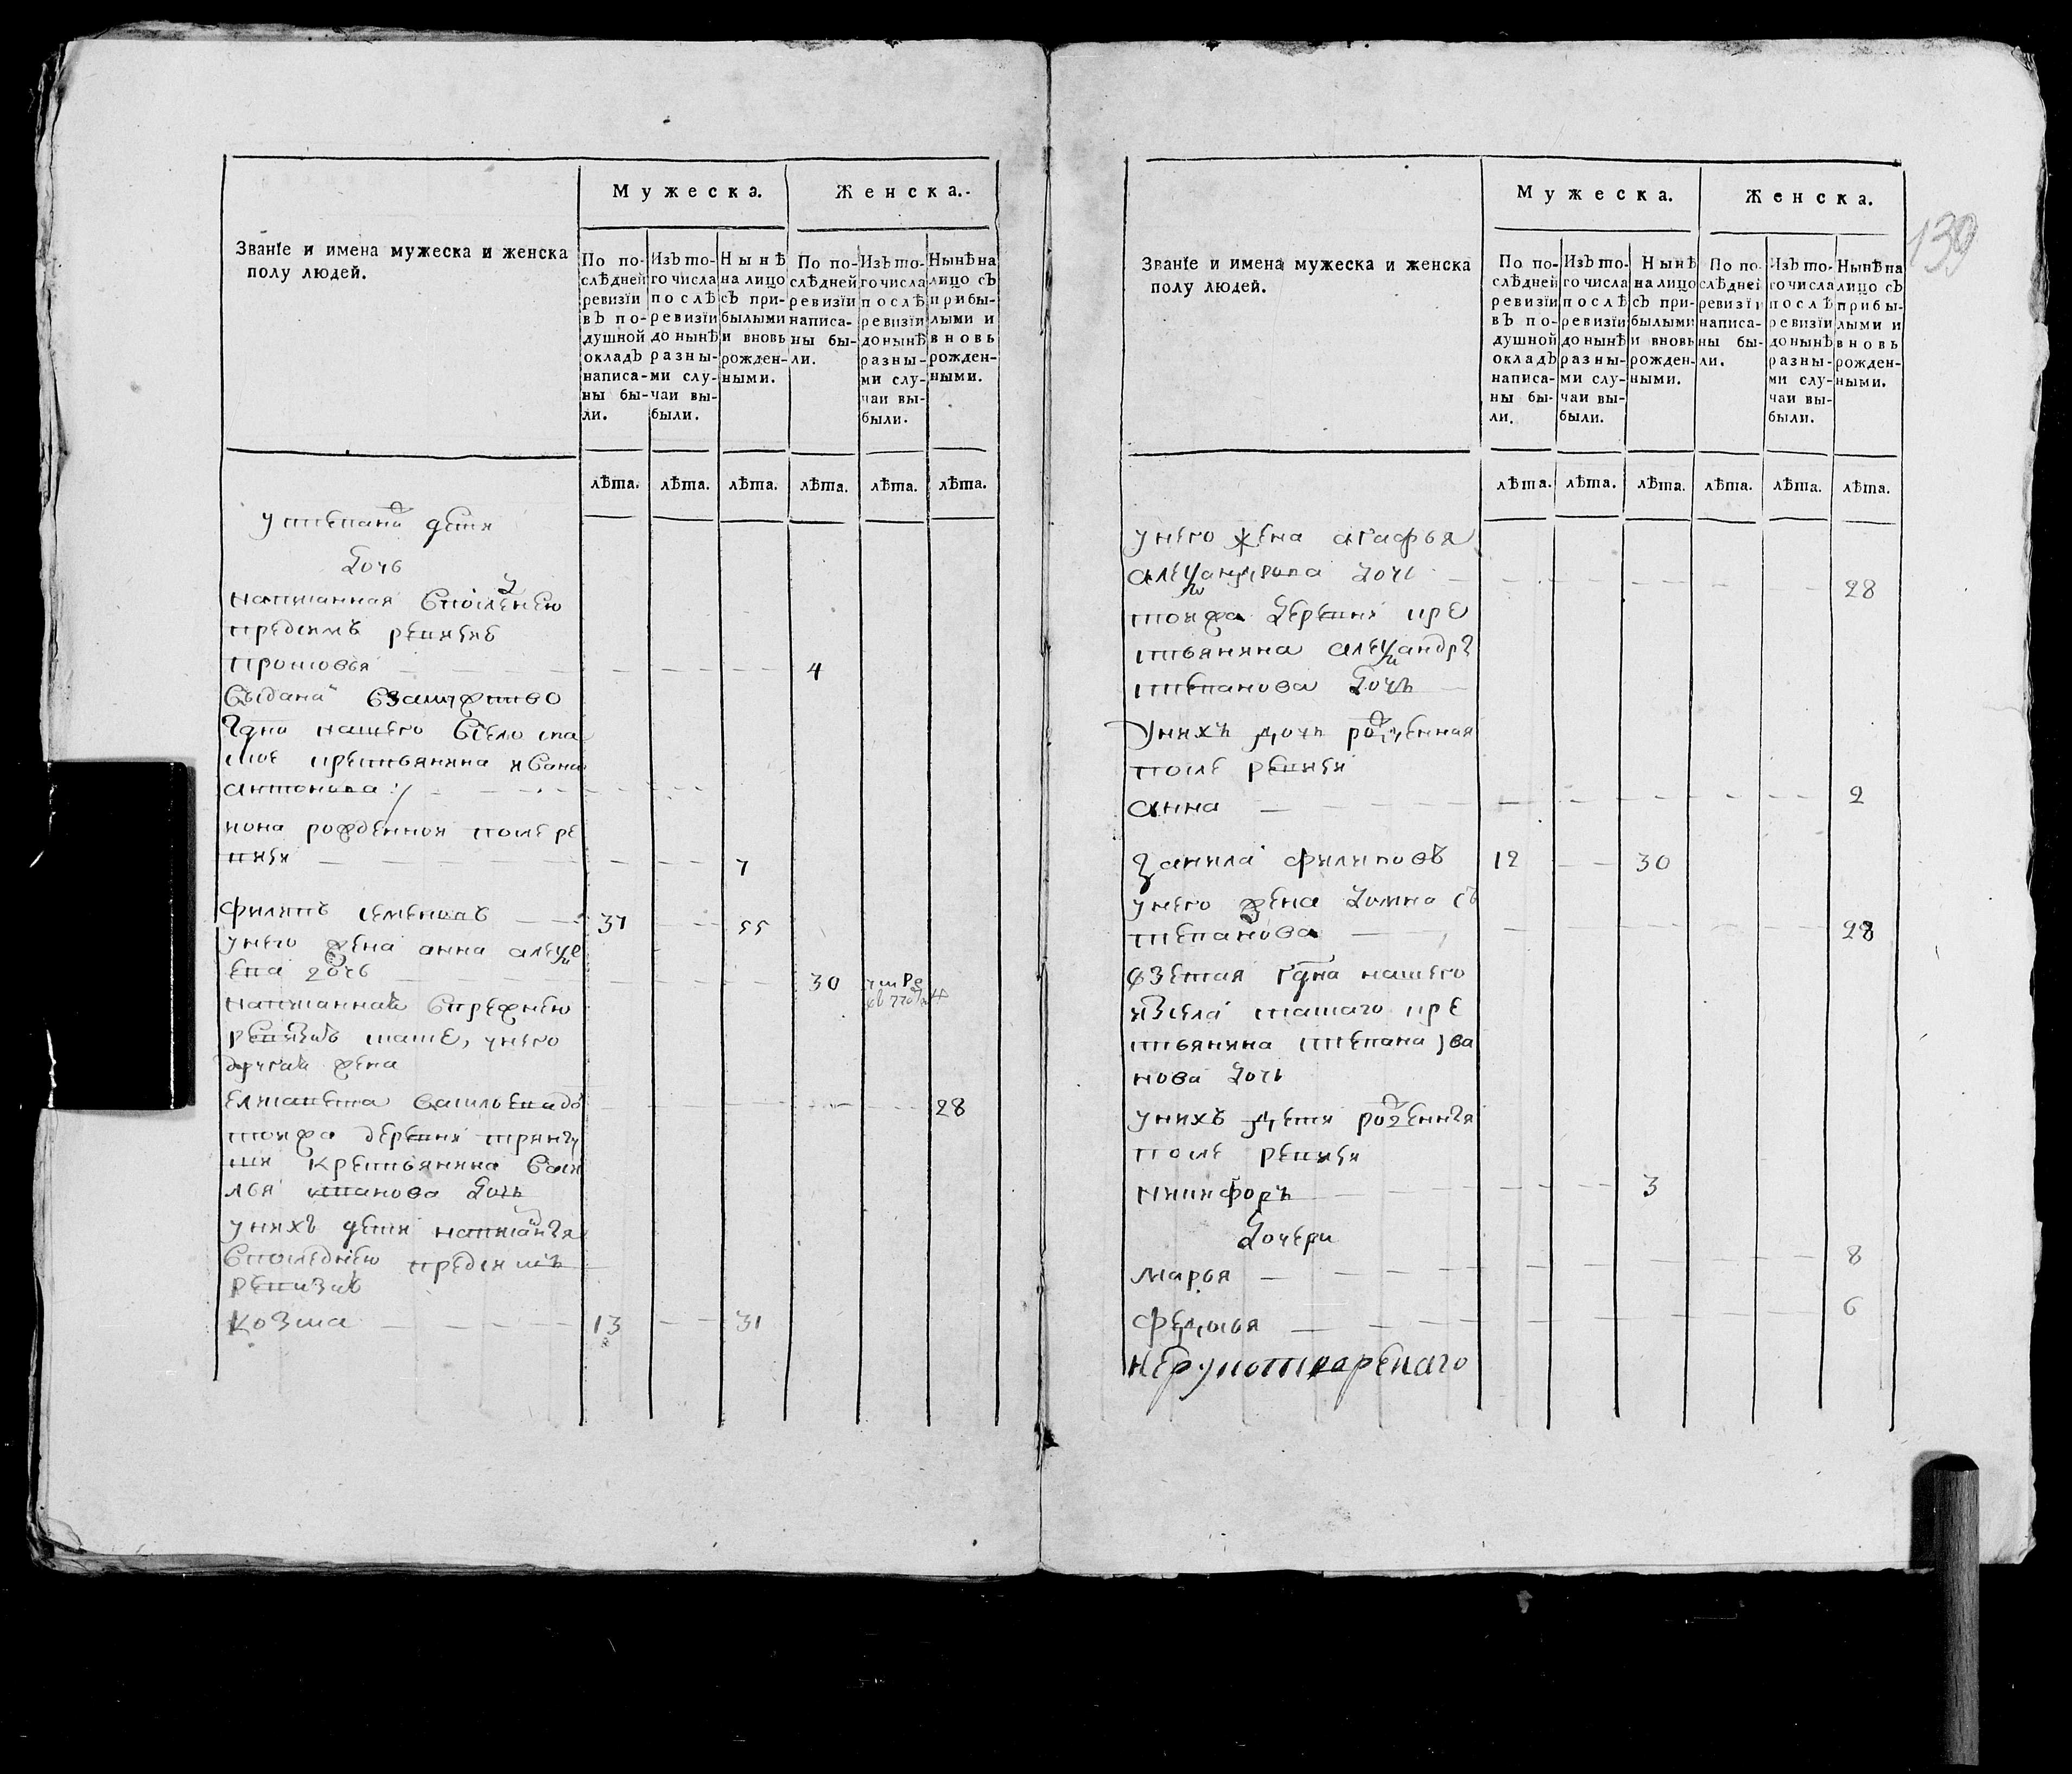 Званіе и имена мужеска и женска
полу людей.
Мужеска.
Женска.
По по-
слѣдней
ревизіи
въ по-
душной
окладъ
написа-
ны бы-
ли.
Изъ то-
го числа
послѣ
ревизіи
до нынѣ
разны-
ми слу-
чаи вы-
были.
Нынѣ
на лицо
съ при-
былыми
и вновь
рожден-
ными.
По по-
слѣдней
ревизіи
написа-
ны бы-
ли.
Изъ то-
го числа
послѣ
ревизіи
до нынѣ
разны-
ми слу-
чаи вы-
были.
Нынѣ на
лицо съ
прибы-
лыми и
вновь
рожден-
ными.
лѣта. лѣта. лѣта. лѣта. лѣта. лѣта.
у степана дети
дочь
написанная
предсимъ ревизие
4
выдана взамужство
гдна нашего всело спа
ское крестьянина ивана
антонова
рожденная после ре
визи 7
филипъ семеновъ 37 55
унего жена анна алексе
ева дочь 30
написанная
ревизиъ унего
другая жена
елисавета васильева до 28
тояжа деревни
крестьянина васи
лья дочь
унихъ дети написания
вполеднею предсимъ
ревизиъ
козма 13 31
139
Званіе и имена мужеска и женска
полу людей.
Мужеска.
Женска.
По по-
слѣдней
ревизіи
въ по-
душной
окладъ
написа-
ны бы-
ли.
Изъ то-
го числа
послѣ
ревизіи
до нынѣ
разны-
ми слу-
чаи вы-
были.
Нынѣ
на лицо
съ при-
былыми
и вновь
рожден-
ными.
По по-
слѣдней
ревизіи
написа-
ны бы-
ли.
Изъ то-
го числа
послѣ
ревизіи
до нынѣ
разны-
ми слу-
чаи вы-
были.
Нынѣ на
лицо съ
прибы-
лыми и
вновь
рожден-
ными.
лѣта. лѣта. лѣта. лѣта. лѣта. лѣта.
унего жена агафья
александрова дочь 28
тояжа деревни кре
стьянина александръ
степанова дочь
Унихъ дочь рожденная
после ревизи
анна 2
данила филиповъ 12 30
унего жена домна съ
тепанова 28
взетая гдна нашего
изсела спаскаго кре
стьянина степана ива
нова дочь
унихъ дети рожденныя
после ревизи
никифоръ 3
дочери
марья 8
федосья 6
нерукотвореннаго